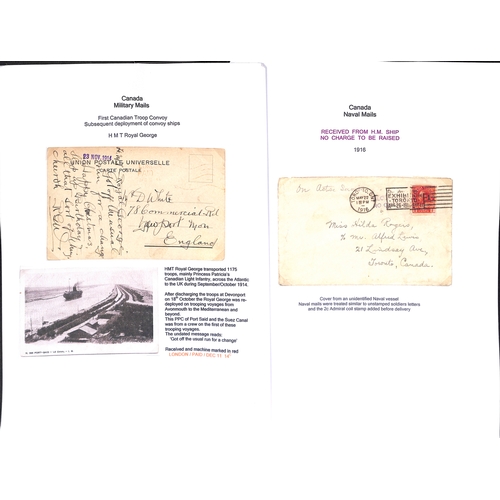 Canada
Military Mails
First Canadian Troop Convoy
Subsequent deployment of convoy ships
H M T Royal George
23 NOV. 1914
UNION POSTALE UNIVERSELLE
CARTE POSTALE
D White
78 Commercial Rd
Newport Mon
England
HMT Royal George transported 1175
troops, mainly Princess Patricia's
Canadian Light Infantry, across the Atlantic
to the UK during September/October 1914.
After discharging the troops at Devonport
on 18th October the Royal George was re-
deployed on trooping voyages from
Avonmouth to the Mediterranean and
beyond.
This PPC of Port Said and the Suez Canal
was from a crew on the first of these
trooping voyages.
The undated message reads:
'Got off the usual run for a change'
Received and machine marked in red
LONDON / PAID / DEC 11 14'
Canada
Naval Mails
RECEIVED FROM H.M. SHIP
NO CHARGE TO BE RAISED
1916
On Active
1916
EXHIBITION
TORONTO
Miss Hilda Rogers,
c/o Mrs. Alfred Lewis
21 Lindsay Ave,
Toronto, Canada.
Cover from an unidentified Naval vessel
Naval mails were treated similar to unstamped soldiers letters
and the 2c Admiral coil stamp added before delivery